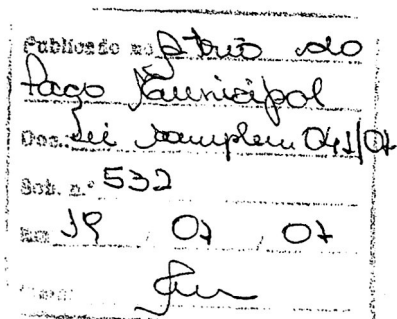 Publicado no Átrio do
Paço Municipal
Doc.: Lei complem. 041/07
Sob. n.º 532
Em 19 / 07 / 07